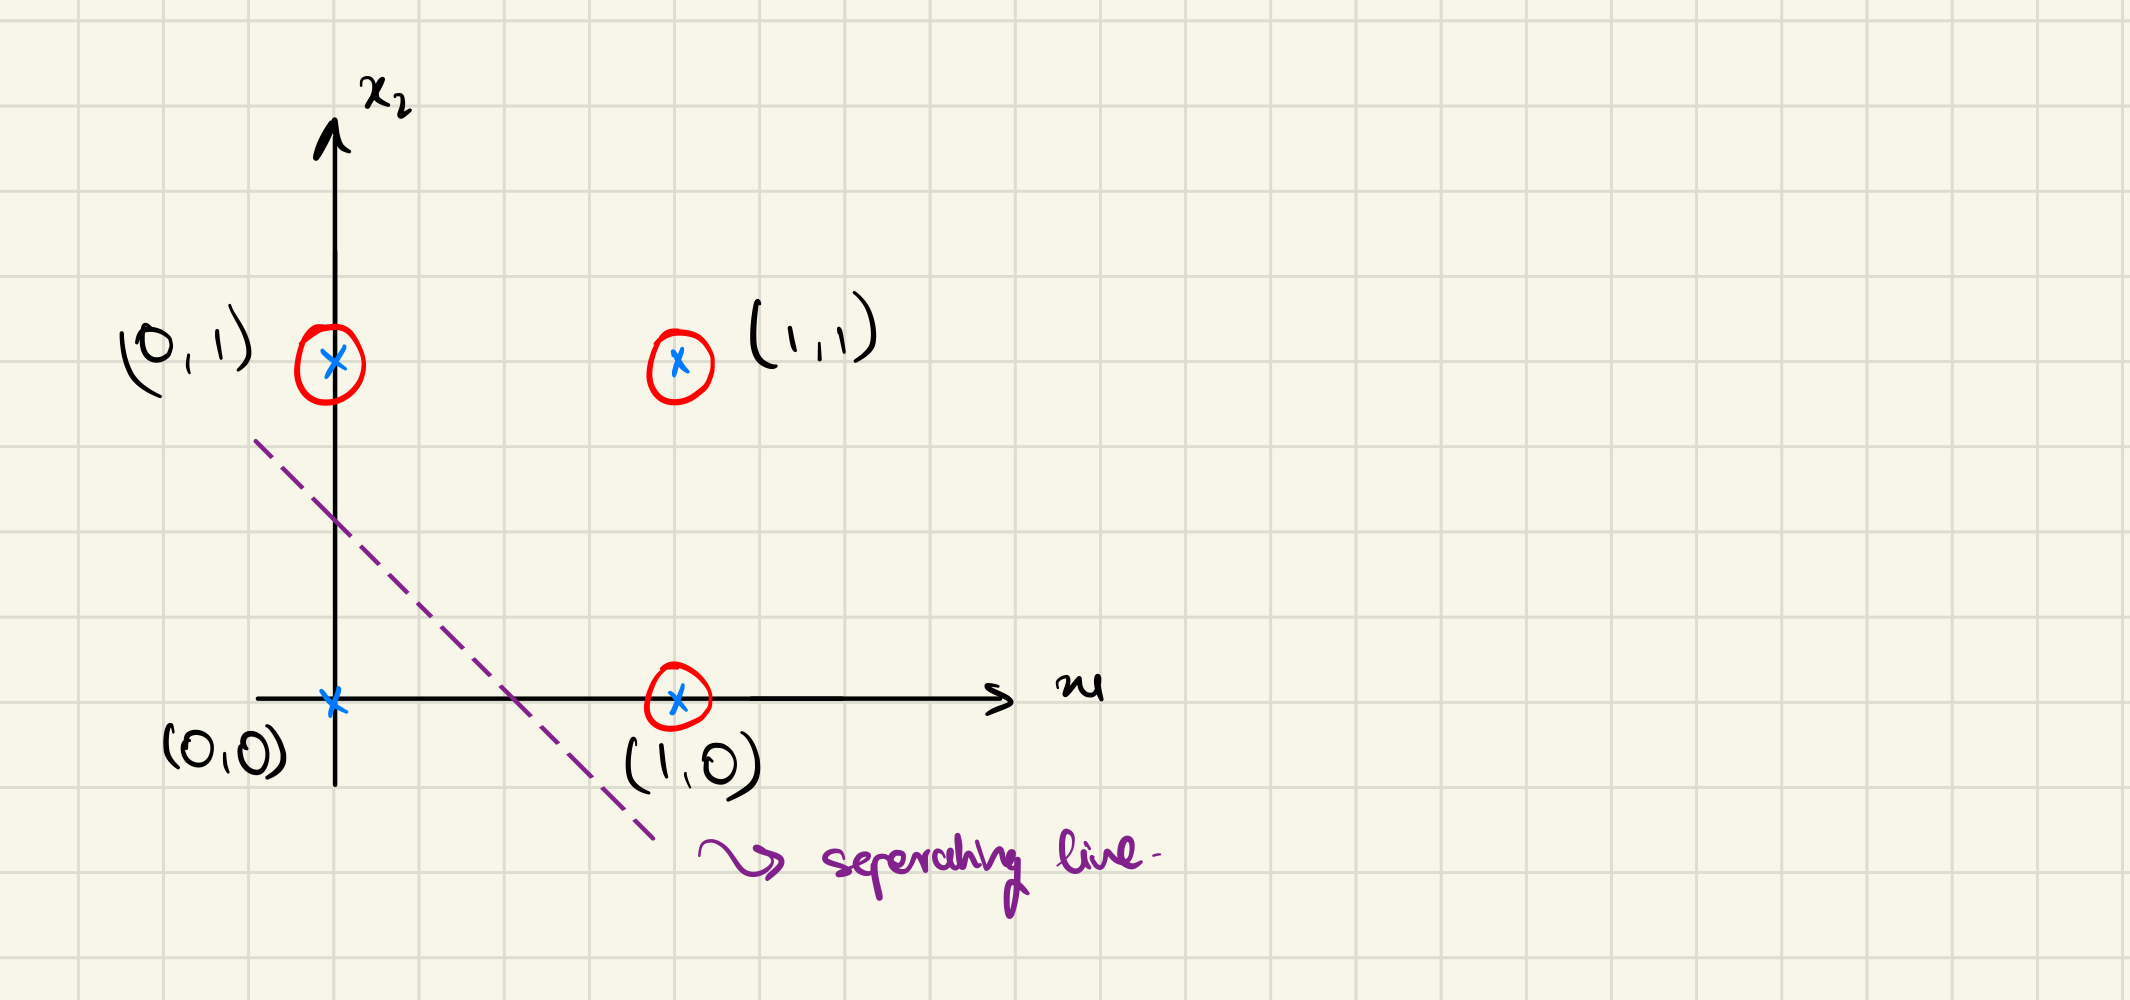 x₂
(0,1)
(1,1)
x₁
(0,0)
(1,0)
seperating line.